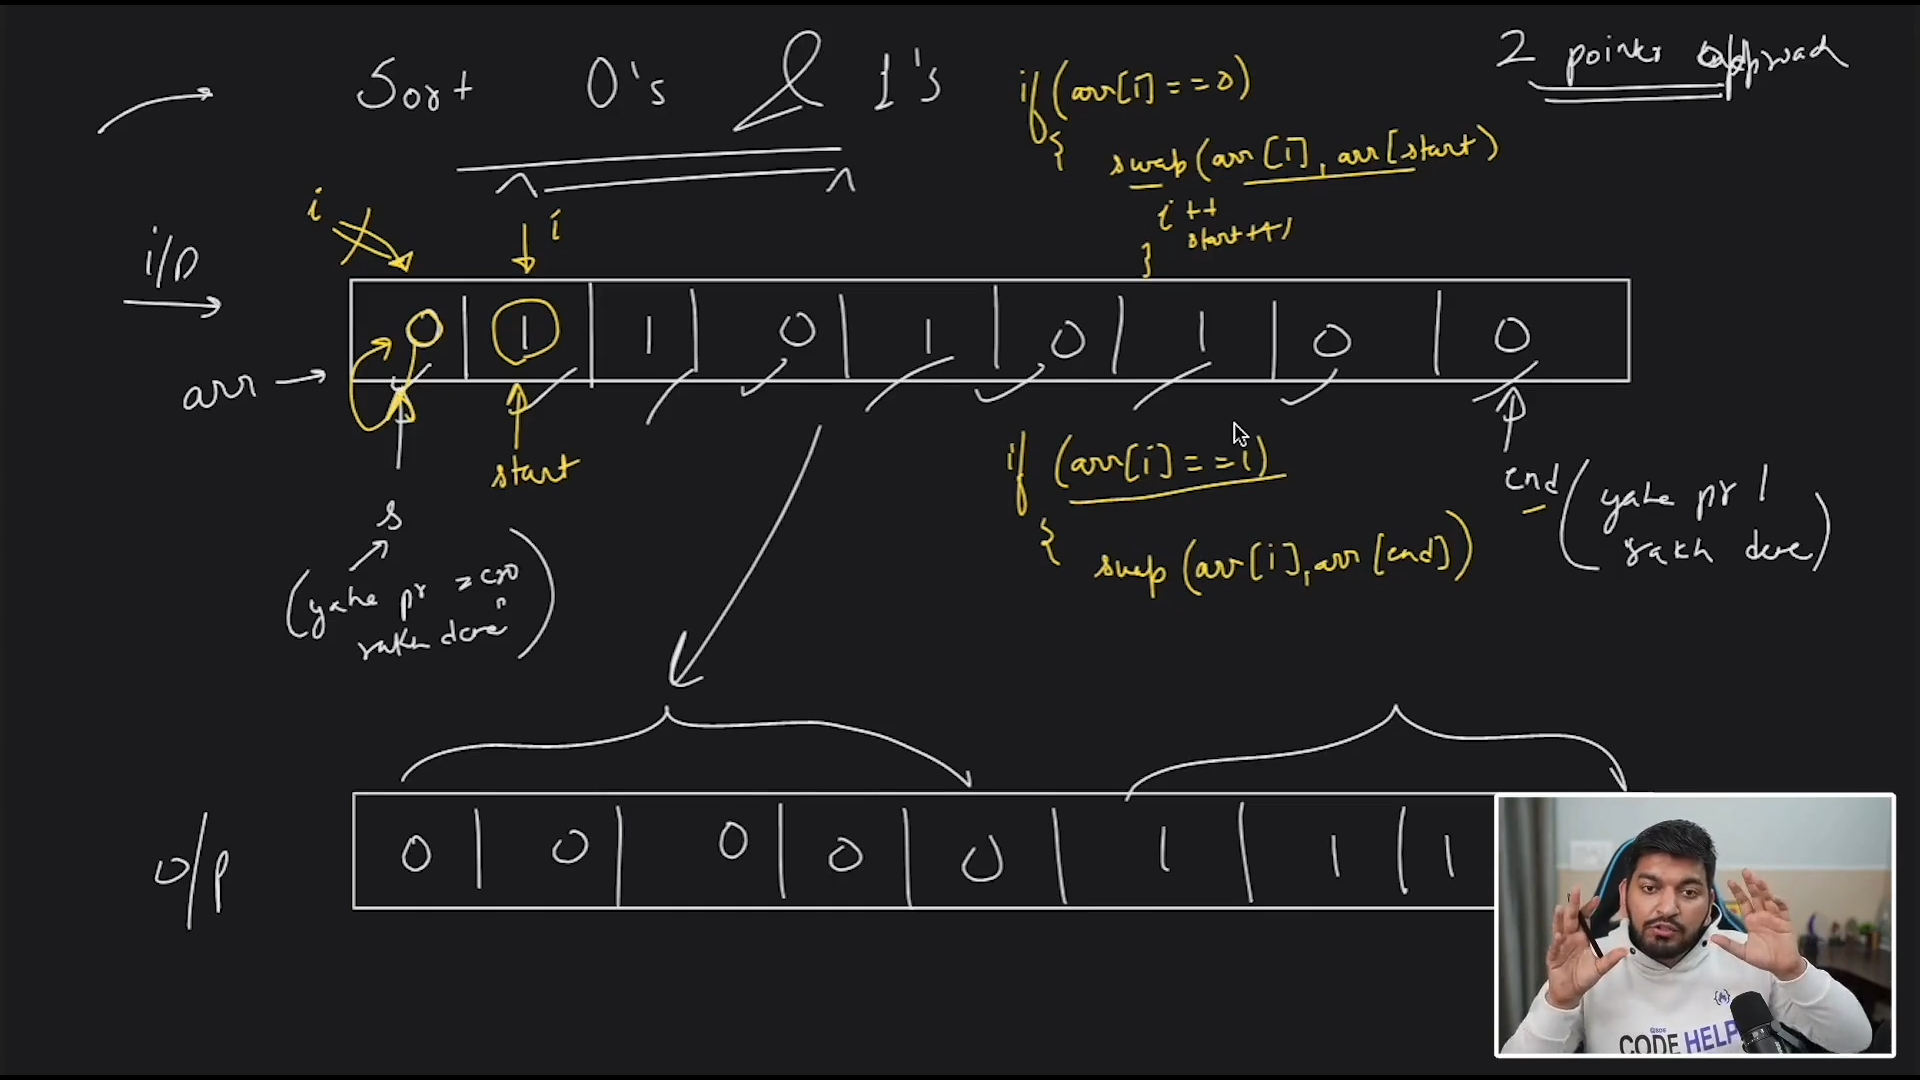 Sort 0's & 1's
2 pointer approach
if (arr[i] == 0)
{
swap (arr[i], arr[start)
i++
start++;
}
i
i
i/p
arr
0 | 1 | 1 | 0 | 1 | 0 | 1 | 0 | 0
start
s
(yahe pr zero
rakh denge)
if (arr[i] == 1)
{
swap (arr[i], arr[end])
end (yahe pr 1
rakh denge)
o/p
0 | 0 | 0 | 0 | 0 | 1 | 1 | 1
CODE HELP